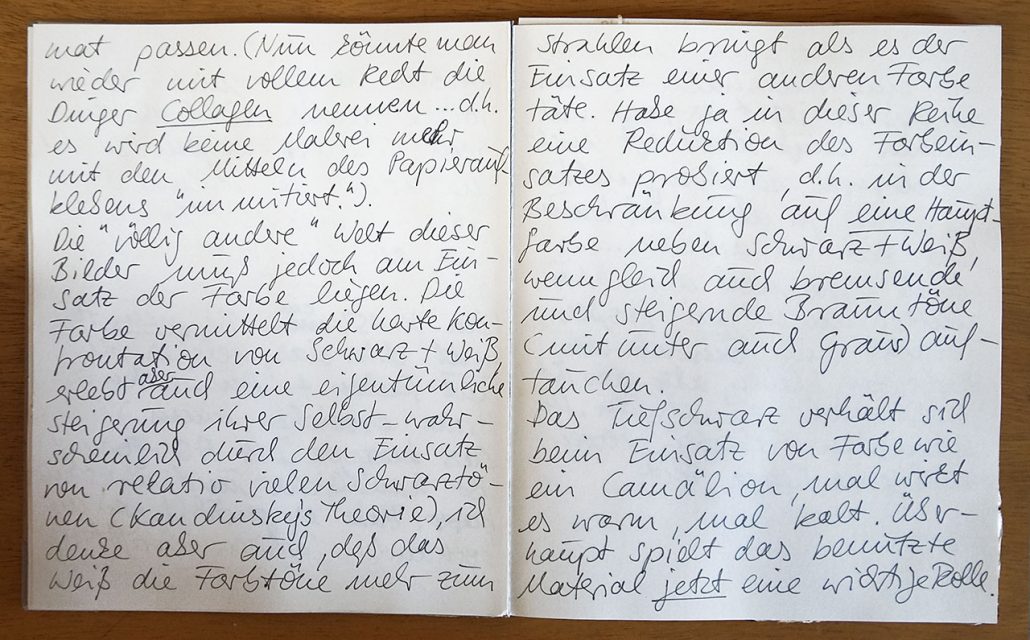 mat passen. (Nun könnte man
wieder mit vollem Recht die
Dinger Collagen nennen... d.h.
es wird keine Malerei mehr
mit den Mitteln des Papierauf-
klebens "imitiert.").
Die "völlig andere" Welt dieser
Bilder muß jedoch am Ein-
satz der Farbe liegen. Die
Farbe vermittelt die harte Kon-
frontation von Schwarz + Weiß,
erlebt aber auch eine eigentümliche
Steigerung ihrer Selbst - wahr-
scheinlich durch den Einsatz
von relativ vielen Schwarztö-
nen (Kandinskys Theorie), ich
denke aber auch, daß das
Weiß die Farbtöne mehr zum
Strahlen bringt als es der
Einsatz einer anderen Farbe
täte. Habe ja in dieser Reihe
eine Reduktion des Farbein-
satzes probiert, d.h. in der
Beschränkung auf eine Haupt-
farbe neben Schwarz + Weiß,
wenngleich auch bremsende
und steigernde Brauntöne
(mitunter auch Grau) auf-
tauchen.
Das Tiefschwarz verhält sich
beim Einsatz von Farbe wie
ein Camälion, mal wirkt
es warm, mal kalt. Über-
haupt spielt das benutzte
Material jetzt eine wichtige Rolle.